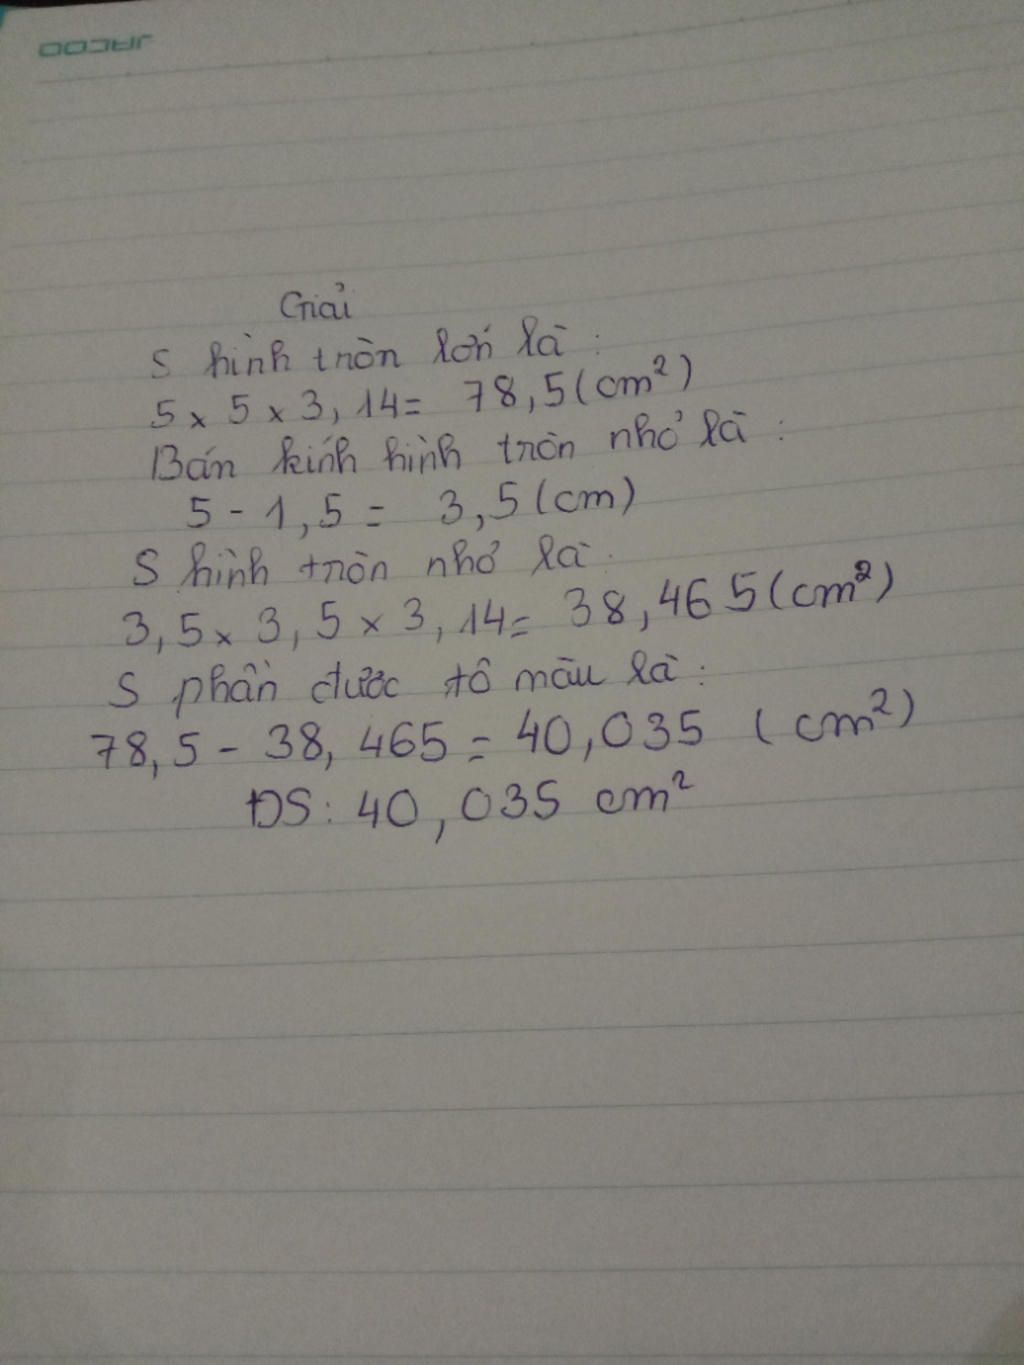 JACOO
Giải
S hình tròn lớn là:
5 x 5 x 3,14 = 78,5 (cm²)
Bán kính hình tròn nhỏ là:
5 - 1,5 = 3,5 (cm)
S hình tròn nhỏ là:
3,5 x 3,5 x 3,14 = 38,465 (cm²)
S phần được tô màu là:
78,5 - 38,465 = 40,035 (cm²)
ĐS: 40,035 cm²